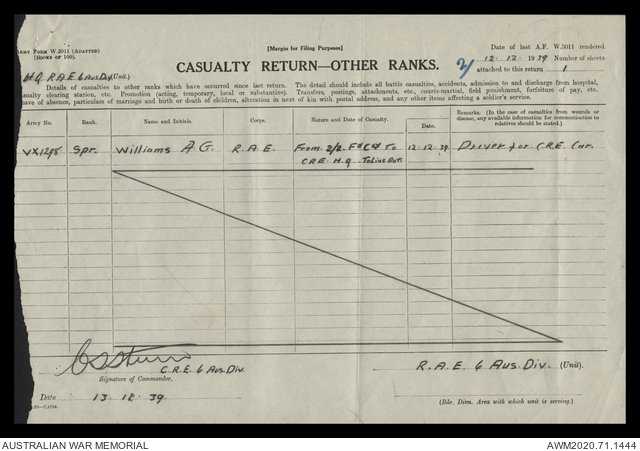 [Margin for Filing Purposes]
ARMY FORM W.3011 (ADAPTED)
(BOOKS OF 100).
CASUALTY RETURN—OTHER RANKS.
2/
Date of last A.F. W.3011 rendered
12. 12. 1939 Number of sheets
attached to this return 1
H.Q R.A.E 6 Aus Div (Unit.)
Details of casualties to other ranks which have occurred since last return. The detail should include all battle casualties, accidents, admission to and discharge from hospital,
casualty clearing station, etc. Promotion (acting, temporary, local or substantive). Transfers, postings, attachments, etc., courts-martial, field punishment, forfeiture of pay, etc.
Leave of absence, particulars of marriage and birth or death of children, alteration in next of kin with postal address, and any other items affecting a soldier's service.
Army No. Rank. Name and Initials. Corps. Nature and Date of Casualty. Date. Remarks. (In the case of casualties from wounds or disease, any available information for communication to relatives should be stated.)
VX1298 Spr. Williams A.G. R.A.E. From 2/2. Fd Coy To 12.12.39 Driver for C.R.E. Car.
C.R.E. H.Q.
C.R.E. 6 Aus. Div.
Signature of Commander.
R.A.E 6 Aus. Div. (Unit).
Date 13. 12. 39
(Bde. Divn. Area with which unit is serving.)
AUSTRALIAN WAR MEMORIAL
AWM2020.71.1444